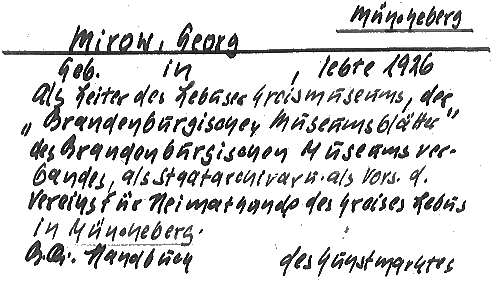 Müncheberg
Mirow, Georg
Geb. in , lebte 1926
als Leiter des Lebuser Kreismuseums, der
„Brandenburgischen Museumsblätter"
des Brandenburgischen Museumsver-
bandes, als Staatarchivar u. als Vors. d.
Vereins für Heimatkunde des Kreises Lebus
in Müncheberg.
Handbuch des Kunstmarktes